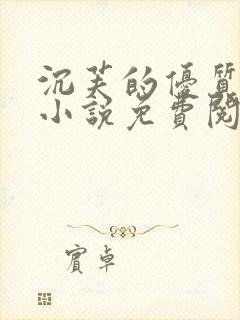 沉芙的優質
小說免費閱
賓卓